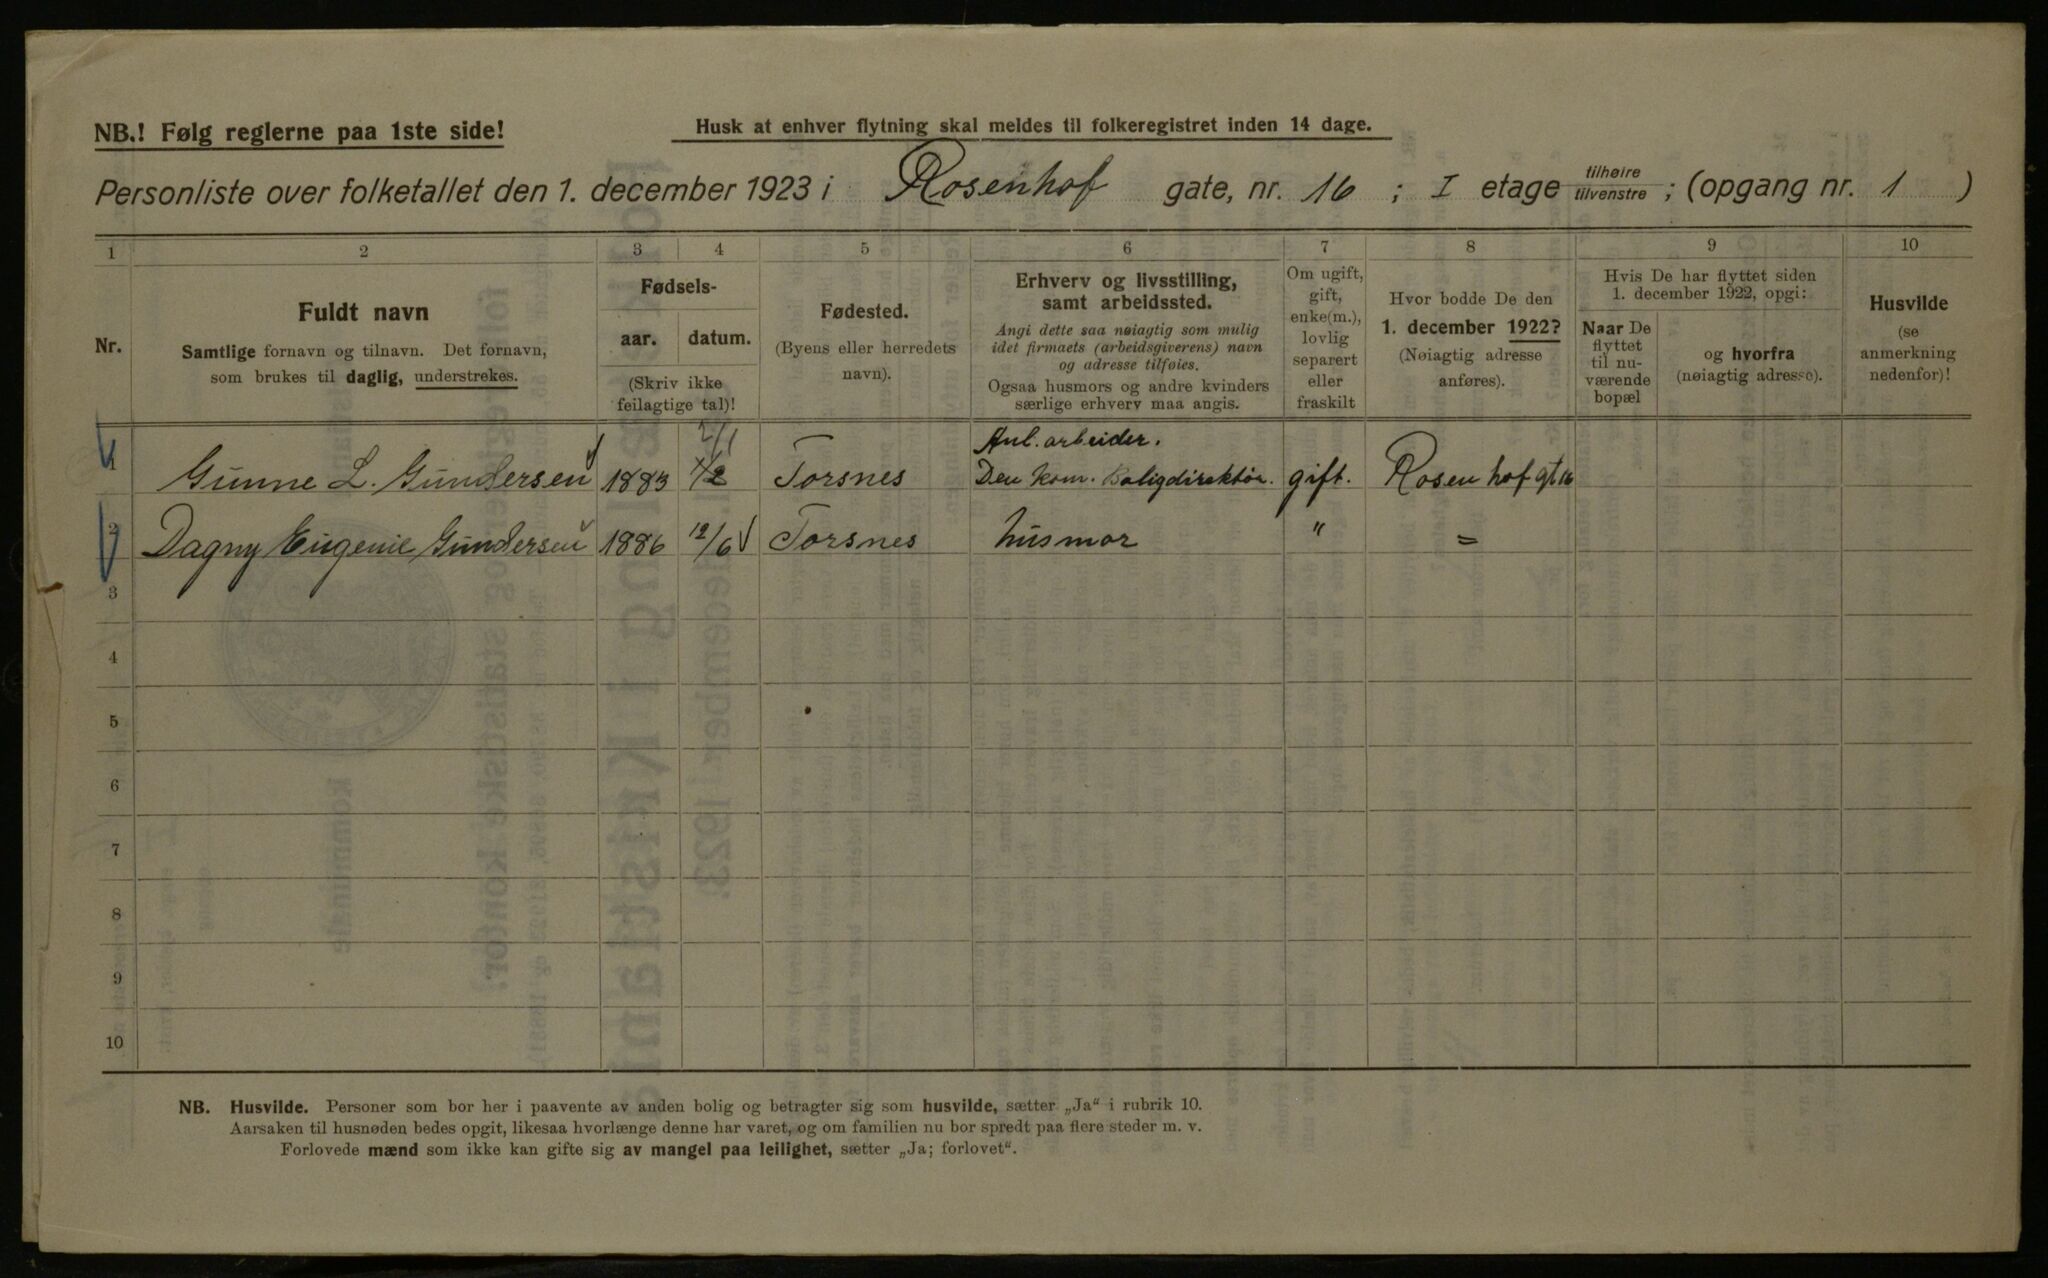 NB.! Følg reglerne paa 1ste side!
Husk at enhver flytning skal meldes til folkeregistret inden 14 dage.
Personliste over folketallet den 1. december 1923 i Rosenhof gate, nr. 16 ; I etage tilhøire tilvenstre ; (opgang nr. 1 )
1 2 3 4 5 6 7 8 9 10
Nr.
Fuldt navn
Samtlige fornavn og tilnavn. Det fornavn,
som brukes til daglig, understrekes.
Fødsels-
aar. datum.
(Skriv ikke
feilagtige tal)!
Fødested.
(Byens eller herredets
navn).
Erhverv og livsstilling,
samt arbeidssted.
Angi dette saa nøiagtig som mulig
idet firmaets (arbeidsgiverens) navn
og adresse tilføies.
Ogsaa husmors og andre kvinders
særlige erhverv maa angis.
Om ugift,
gift,
enke(m.),
lovlig
separert
eller
fraskilt
Hvor bodde De den
1. december 1922?
(Nøiagtig adresse
anføres).
Hvis De har flyttet siden
1. december 1922, opgi:
Naar De
flyttet
til nu-
værende
bopæl
og hvorfra
(nøiagtig adresse).
Husvilde
(se
anmerkning
nedenfor)!
2/1
Anl. arbeider.
1 Gunne L. Gundersen 1883 Torsnes Den kom. Boligdirektør. gift. Rosenhofgt 16
2 Dagny Eugenie Gundersen 1886 12/6 Torsnes husmor " =
3
4
5
6
7
8
9
10
NB. Husvilde. Personer som bor her i paavente av anden bolig og betragter sig som husvilde, sætter „Ja“ i rubrik 10.
Aarsaken til husnøden bedes opgit, likesaa hvorlænge denne har varet, og om familien nu bor spredt paa flere steder m. v.
Forlovede mænd som ikke kan gifte sig av mangel paa leilighet, sætter „Ja; forlovet“.